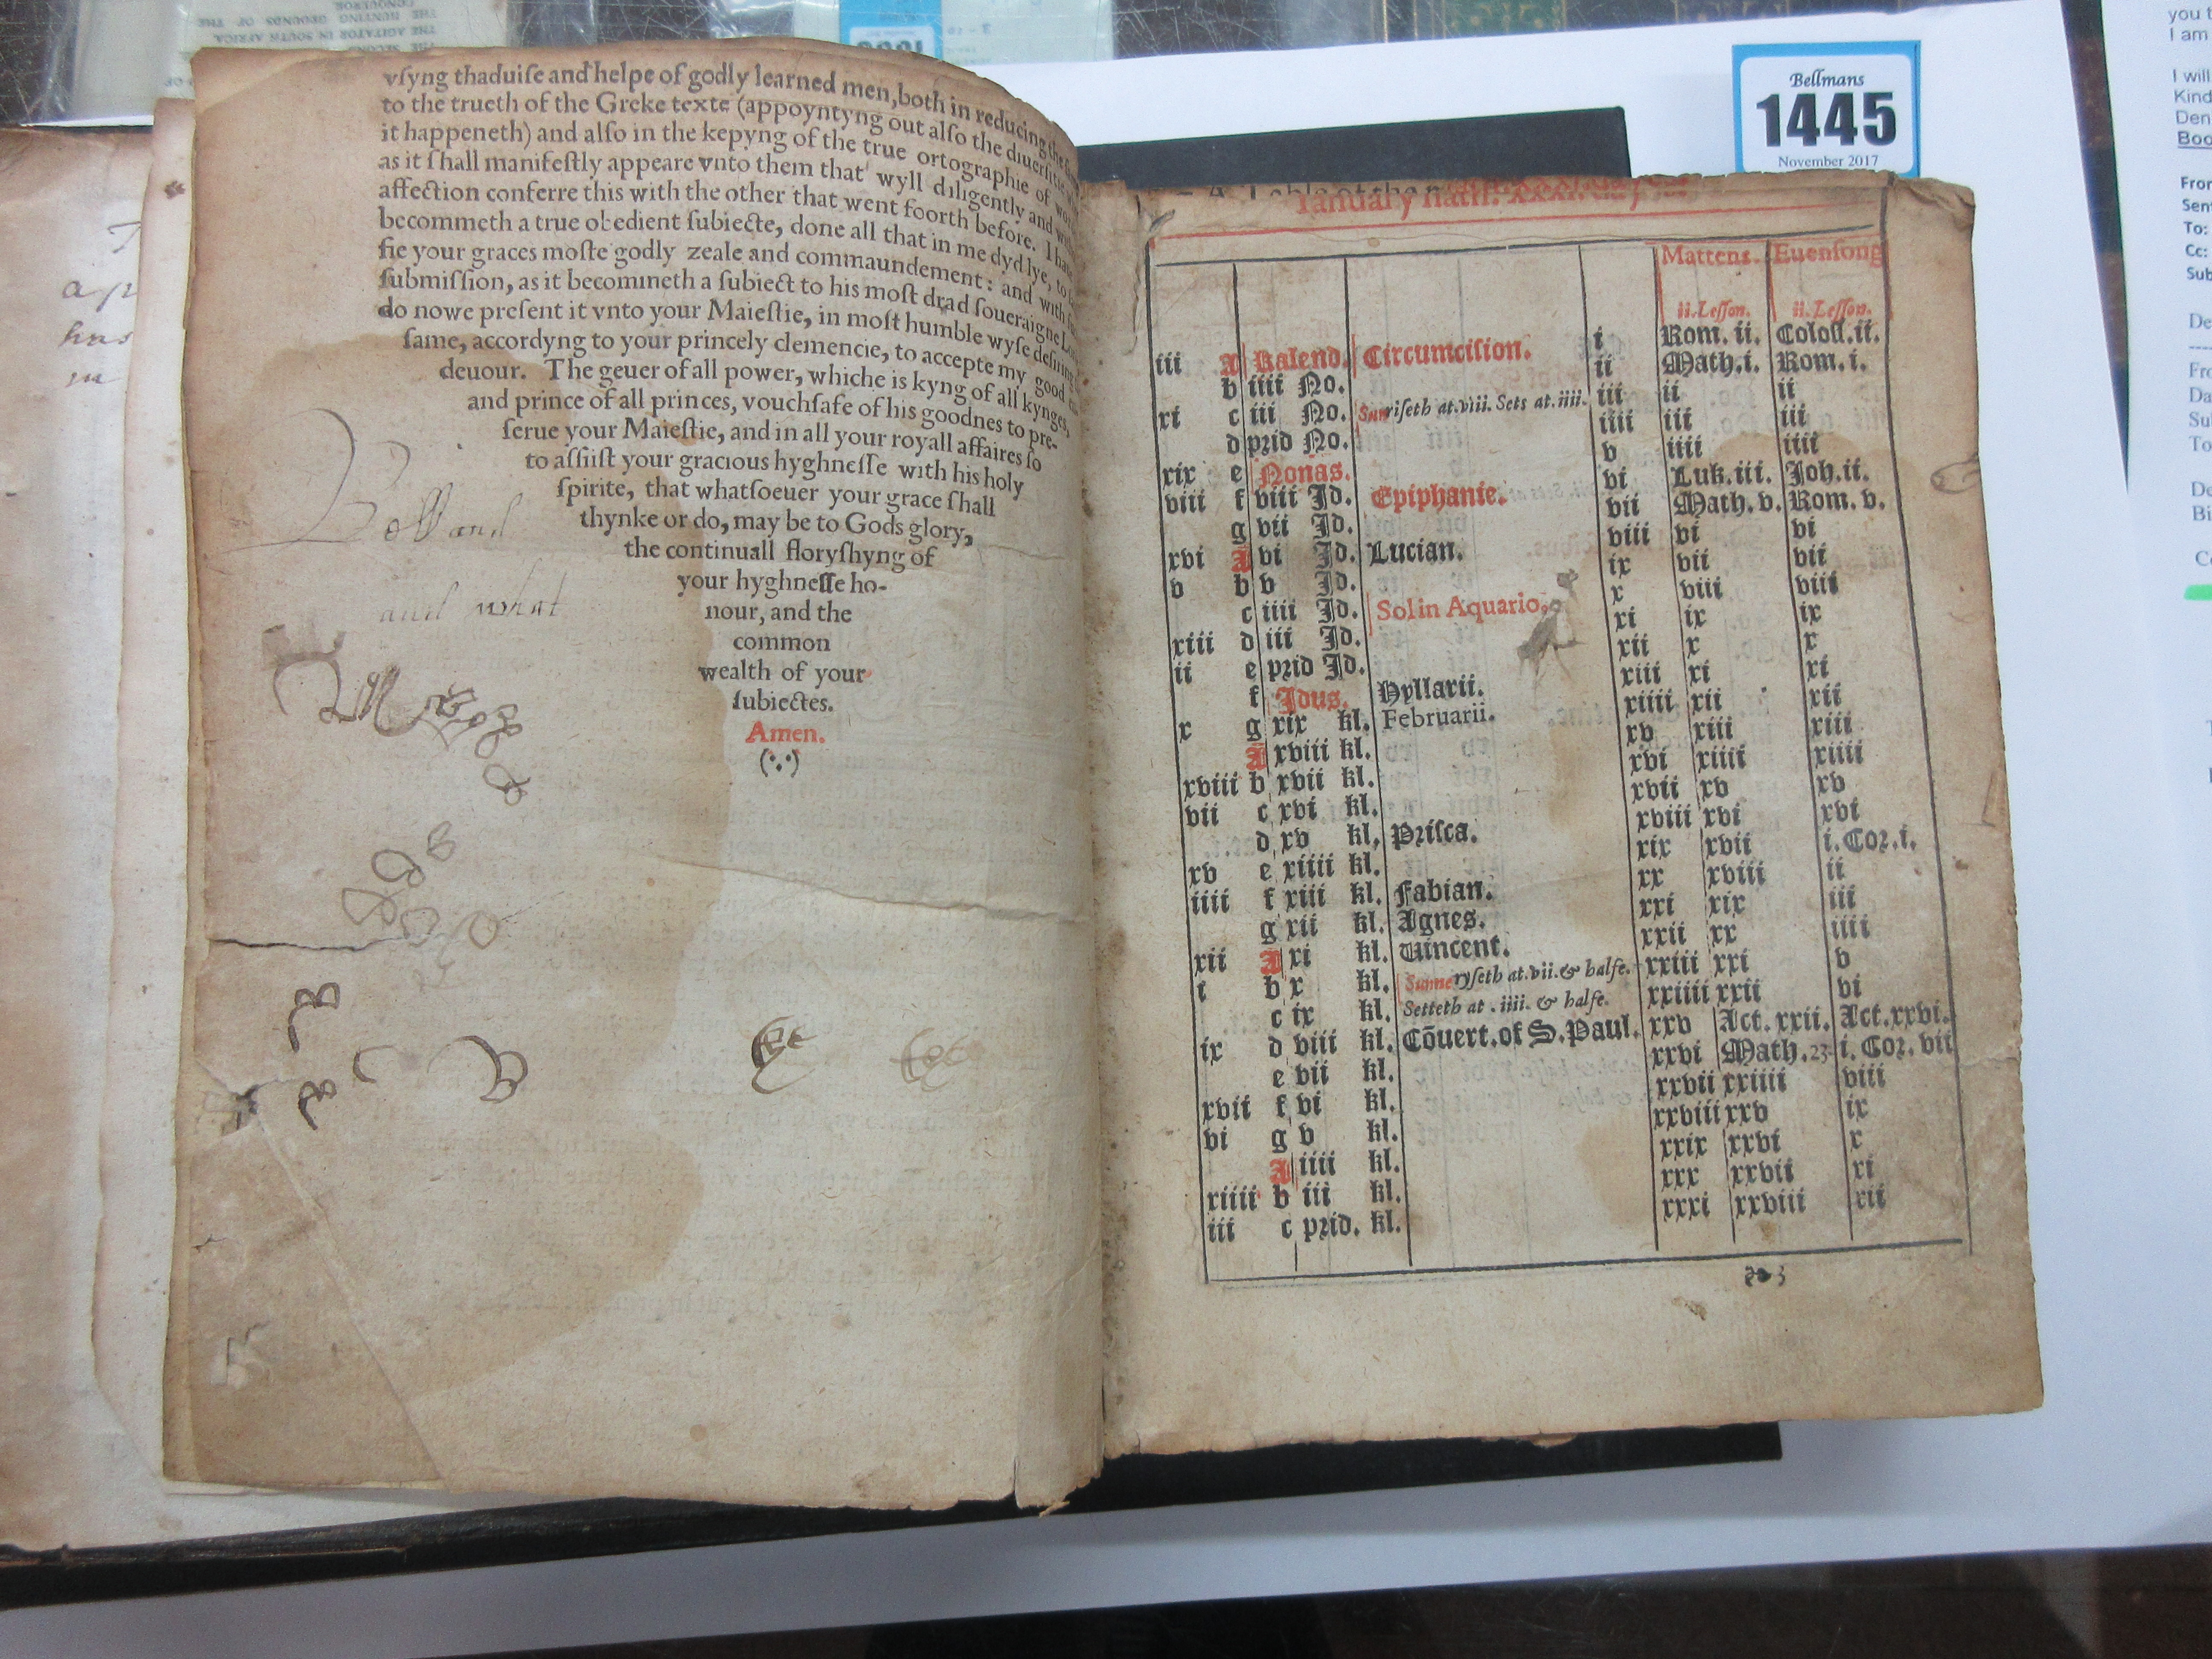 vſyng thaduiſe and helpe of godly learned men, both in reducing
to the trueth of the Greke texte (appoyntyng out alſo the diuerſitie
it happeneth) and alſo in the kepyng of the true ortographie of
as it ſhall manifeſtly appeare vnto them that wyll diligently and
affection conferre this with the other that went foorth before. I
becommeth a true obedient ſubiecte, done all that in me dyd lye, to
fie your graces moſte godly zeale and commaundement: and with
ſubmiſſion, as it becommeth a ſubiect to his moſt drad ſoueraigne
do nowe preſent it vnto your Maieſtie, in moſt humble wyſe deſiring
ſame, accordyng to your princely clemencie, to accepte my good
deuour. The geuer of all power, whiche is kyng of all kynges,
and prince of all princes, vouchſafe of his goodnes to pre-
ſerue your Maieſtie, and in all your royall affaires ſo
to aſſiſt your gracious hyghneſſe with his holy
ſpirite, that whatſoeuer your grace ſhall
thynke or do, may be to Gods glory,
the continuall floryſhyng of
your hyghneſſe ho-
nour, and the
common
wealth of your
ſubiectes.
Amen.
and what
Bellmans
1445
November 2017
Ianuary hath. xxxi.
Mattens. Euenſong
ii. Leſſon. ii. Leſſon.
iii A Kalend. Circumciſion. i Rom. ii. Coloſſ. ii.
b iiii No. ii Math. i. Rom. i.
xi c iii No. Sunriſeth at. viii. Sets at. iiii. iii ii ii
d prid No. iiii iii iii
xix e Nonas. v iiii iiii
viii f viii Id. Epiphanie. vi Luk. iii. Joh. ii.
g vii Id. vii Math. v. Rom. v.
xvi A vi Id. Lucian. viii vi vi
v b v Id. ix vii vii
c iiii Id. Sol in Aquario. x viii viii
xiii d iii Id. xi ix ix
ii e prid Id. xii x x
f Idus. Hyllarii. xiii xi xi
x g xix kl. Februarii. xiiii xii xii
A xviii kl. xv xiii xiii
xviii b xvii kl. xvi xiiii xiiii
vii c xvi kl. xvii xv xv
d xv kl. Priſca. xviii xvi xvi
xv e xiiii kl. xix xvii i. Cor. i.
iiii f xiii kl. Fabian. xx xviii ii
g xii kl. Agnes. xxi xix iii
xii A xi kl. Vincent. xxii xx iiii
i b x kl. Sunne ryſeth at. vii. & halfe. xxiii xxi v
c ix kl. Setteth at . iiii. & halfe. xxiiii xxii vi
ix d viii kl. Cõuert. of S. Paul. xxv Act. xxii. Act. xxvi.
e vii kl. xxvi Math. 23 i. Cor. vii
xvii f vi kl. xxvii xxiiii viii
vi g v kl. xxviii xxv ix
A iiii kl. xxix xxvi x
xiiii b iii kl. xxx xxvii xi
iii c prid. kl. xxxi xxviii xii